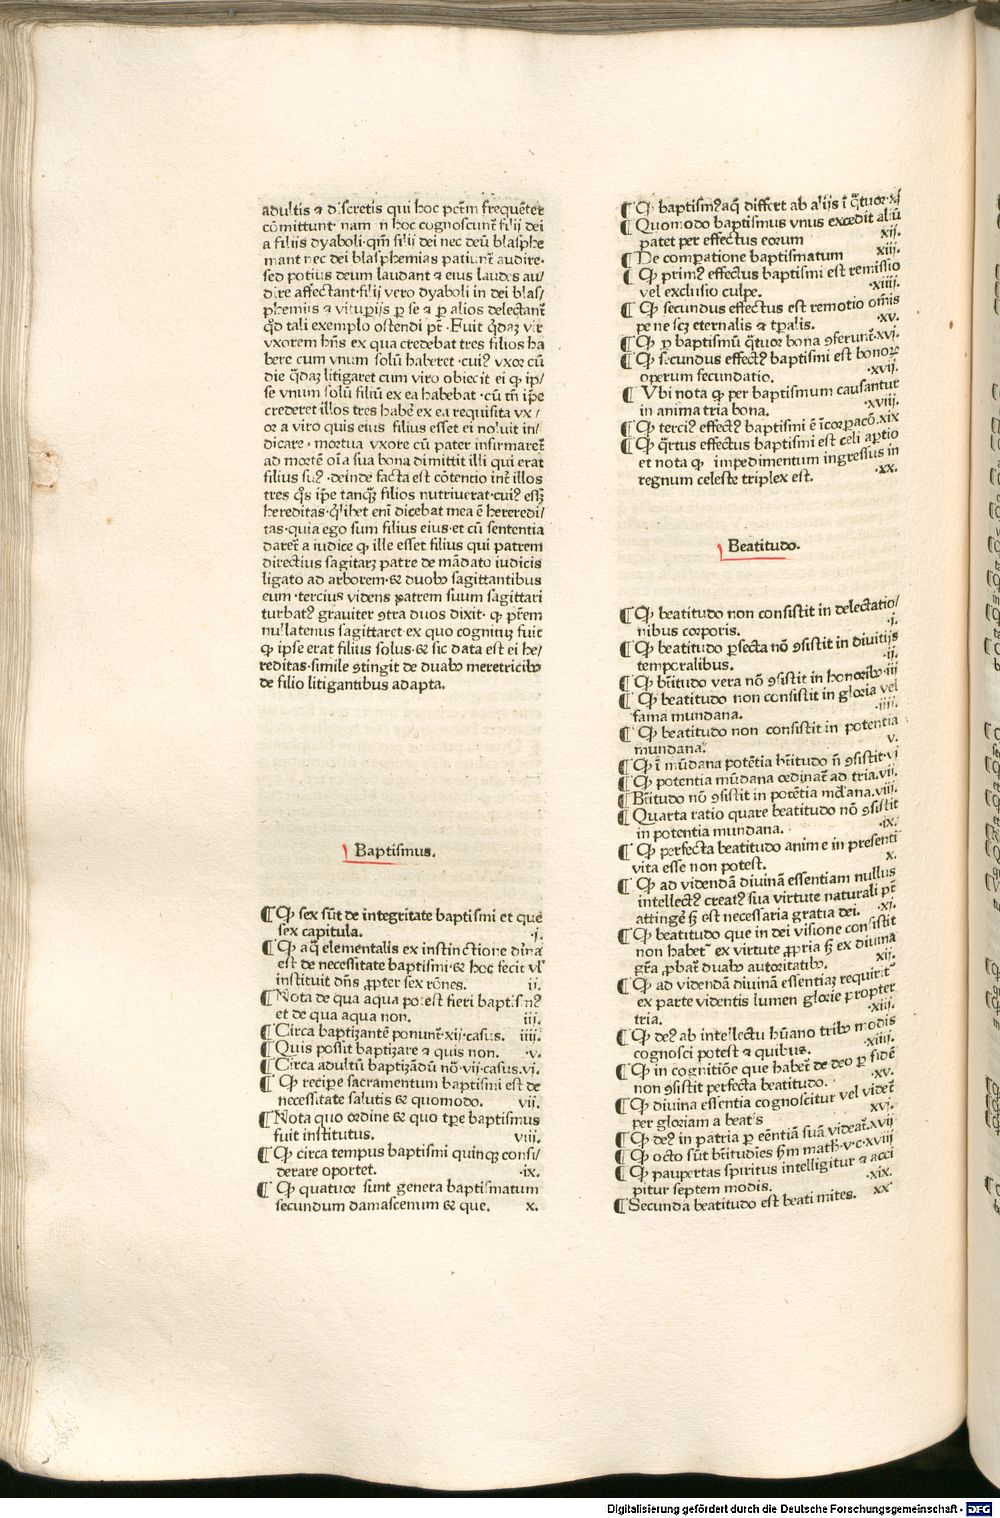 adultis ⁊ discretis qui hoc pctm̄ frequēter
cōmittunt· nam in hoc cognoscunt᷑ filij dei
a filiis dyaboli·qm̄ filii dei nec deū blasphe
mant nec dei blasphemias patiunt᷑ audire·
sed potius deum laudant ⁊ eius laudes au/
dire affectant·filij vero dyaboli in dei blas/
phemiis ⁊ vituꝑijs ꝑ se ⁊ ꝑ alios delectant᷑
qd̄ tali exemplo ostendi pt᷑ ·Fuit qͥdaꝫ vir
vxorem hn̄s ex qua credebat tres filios ha
bere cum vnum solū haberet ·cuiꝰ vxor cū
die qͣdaꝫ litigaret cum viro obiecit ei ꝙ ip/
se vnum solū filiū ex ea habebat ·cū tn̄ ip̄e
crederet illos tres habē ex ea requisita vx/
or a viro quis eius filius esset ei noluit in/
dicare· mortua vxore cū pater infirmaret᷑
ad mortē oīa sua bona dimittit illi qui erat
filius suꝰ ·deinde facta est cōtentio int᷑ illos
tres qͦs ip̄e tanqͣꝫ filios nutriuerat·cuiꝰ eēꝫ
hereditas·qͥlibet enī dicebat mea ē hereredi/
tas·quia ego sum filius eius·et cū sententia
daret᷑ a iudice ꝙ ille esset filius qui patrem
directius sagitarꝫ patre de mādato iudicis
ligato ad arborem·⁊ duobꝰ sagittantibus
eum ·tercius videns patrem suum sagittari
turbatꝰ grauiter ꝯtra duos dixit· ꝙ pr̄em
nullatenus sagittaret·ex quo cognituꝫ fuit
ꝙ ipse erat filius solus·⁊ sic data est ei he/
reditas·simile ꝯtingit de duabꝰ meretricibꝰ
de filio litigantibus adapta.
Baptismus.
¶ Ꝙ sex sūt de integritate baptismi et que
sex capitula. ·i.
¶ Ꝙ aqͣ elementalis ex instinctione diīna
est de necessitate baptismi·⁊ hoc fecit vl᷑
instituit dn̄s ꝓpter sex rōnes. ii.
¶ Nota de qua aqua potest fieri baptismꝰ
et de qua aqua non. iii.
¶ Circa baptizantē ponunt᷑·xij·casus. iiii.
¶ Quis possit baptizare ⁊ quis non. ·v.
¶ Circa adultū baptizādū nō·vij·casus.vi.
¶ Ꝙ recipe sacramentum baptismi est de
necessitate salutis ⁊ quomodo. vii.
¶ Nota quo ordine ⁊ quo tp̄e baptismus
fuit institutus. viii.
¶ Ꝙ circa tempus baptismi quinqꝫ consi/
derare oportet. ·ix.
¶ Ꝙ quatuor sunt genera baptismatum
secundum damascenum ⁊ que. x.
¶ Ꝙ baptismꝰ aqͣ differt ab alijs ī qͣtuor·xi
¶ Quomodo baptismus vnus excedit aliū
patet per effectus eorum xij.
¶ De compatione baptismatum xiii.
¶ Ꝙ primꝰ effectus baptismi est remissio
vel exclusio culpe. ·xiiii.
¶ Ꝙ secundus effectus est remotio om̄is
pene scꝫ eternalis ⁊ tp̄alis. ·xv.
¶ Ꝙ ꝑ baptismū qͣtuor bona ꝯferunt᷑·xvi.
¶ Ꝙ secundus effectꝰ baptismi est bonoꝝ
operum fecundatio. ·xvii.
¶ Vbi nota ꝙ per baptismum causantur
in anima tria bona. ·xviii.
¶ Ꝙ terciꝰ effectꝰ baptismi ē īcorpacō.xix
¶ Ꝙ qͣrtus effectus baptismi est celi aptio
et nota ꝙ impedimentum ingressus in
regnum celeste triplex est. ·xx.
Beatitudo.
¶ Ꝙ beatitudo non consistit in delectatio/
nibus corporis. ·i.
¶ Ꝙ beatitudo ꝑfecta nō ꝯsistit in diuitijs
temporalibus. ·ii.
¶ Ꝙ btītudo vera nō ꝯsistit in honoribꝰ·iii
¶ Ꝙ beatitudo non consistit in gloria vel
fama mundana. ·iiii.
¶ Ꝙ beatitudo non consistit in potentia
mundana. v.
¶ Ꝙ ī mūdana potētia btītudo n̄ ꝯsistit·vi
¶ Ꝙ potentia mūdana ordinat᷑ ad tria.vii.
¶ Btītudo nō ꝯsistit in potētia md̄ana.viii.
¶ Quarta ratio quare beatitudo nō ꝯsistit
in potentia mundana. ·ix.
¶ Ꝙ perfecta beatitudo anime in presenti
vita esse non potest. x.
¶ Ꝙ ad videndā diuinā essentiam nullus
intellectꝰ creatꝰ sua virtute naturali pt᷑
attingē sꝫ est necessaria gratia dei. ·xi.
¶ Ꝙ beatitudo que in dei visione consistit
non habet᷑ ex virtute ꝓpria sꝫ ex diuina
gr̄a ꝓbat᷑ duabꝰ autoritatibꝰ. xii.
¶ Ꝙ ad videndā diuinā essentiaꝫ requirit᷑
ex parte videntis lumen glorie propter
tria. ·xiii.
¶ Ꝙ deꝰ ab intellectu hūano tribꝰ modis
cognosci potest ⁊ quibus. ·xiiii.
¶ Ꝙ in cognitiōe que habet᷑ de deo ꝑ fidē
non ꝯsistit perfecta beatitudo. ·xv.
¶ Ꝙ diuina essentia cognoscitur vel videt᷑
per gloriam a beatis xvi.
¶ Ꝙ deꝰ in patria ꝑ eēntiā suā videat᷑.xvii
¶ Ꝙ octo sūt btītudīes sm̄ math̄·v·c·xviii
¶ Ꝙ paupertas spiritus intelligitur ⁊ acci
pitur septem modis. ·xix.
¶ Secunda beatitudo est beati mites. xx·
Digitalisierung gefördert durch die Deutsche Forschungsgemeinschaft - DFG